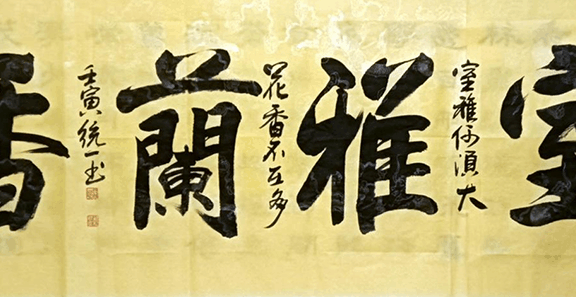 室雅蘭香
室雅何須大
花香不在多
壬寅統一书